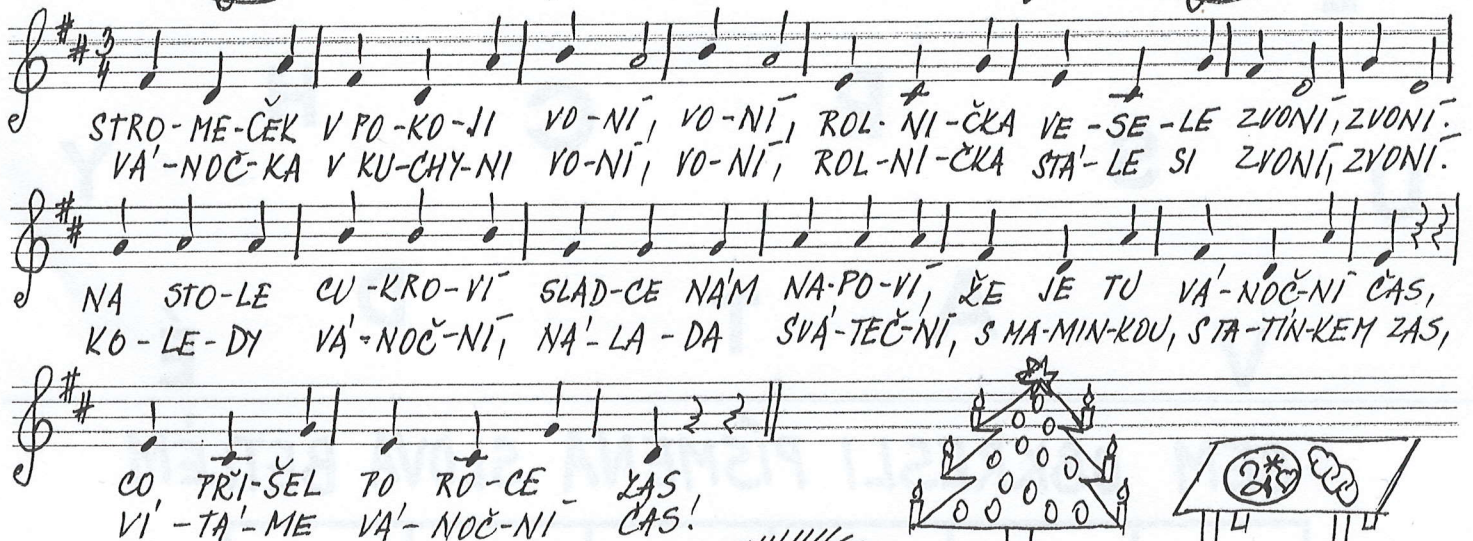 3
4
STRO-ME-ČEK V PO-KO-JI VO-NÍ, VO-NÍ, ROL-NI-ČKA VE-SE-LE ZVONÍ, ZVONÍ.
VÁ-NOČ-KA V KU-CHY-NI VO-NÍ, VO-NÍ, ROL-NI-ČKA STÁ-LE SI ZVONÍ, ZVONÍ.
NA STO-LE CU-KRO-VÍ SLAD-CE NÁM NA-PO-VÍ, ŽE JE TU VÁ-NOČ-NÍ ČAS,
KO-LE-DY VÁ-NOČ-NÍ, NÁ-LA-DA SVÁ-TEČ-NÍ, S MA-MIN-KOU, S TA-TÍN-KEM ZAS,
CO PŘI-ŠEL PO RO-CE ZAS
VÍ-TÁ-ME VÁ-NOČ-NÍ ČAS!